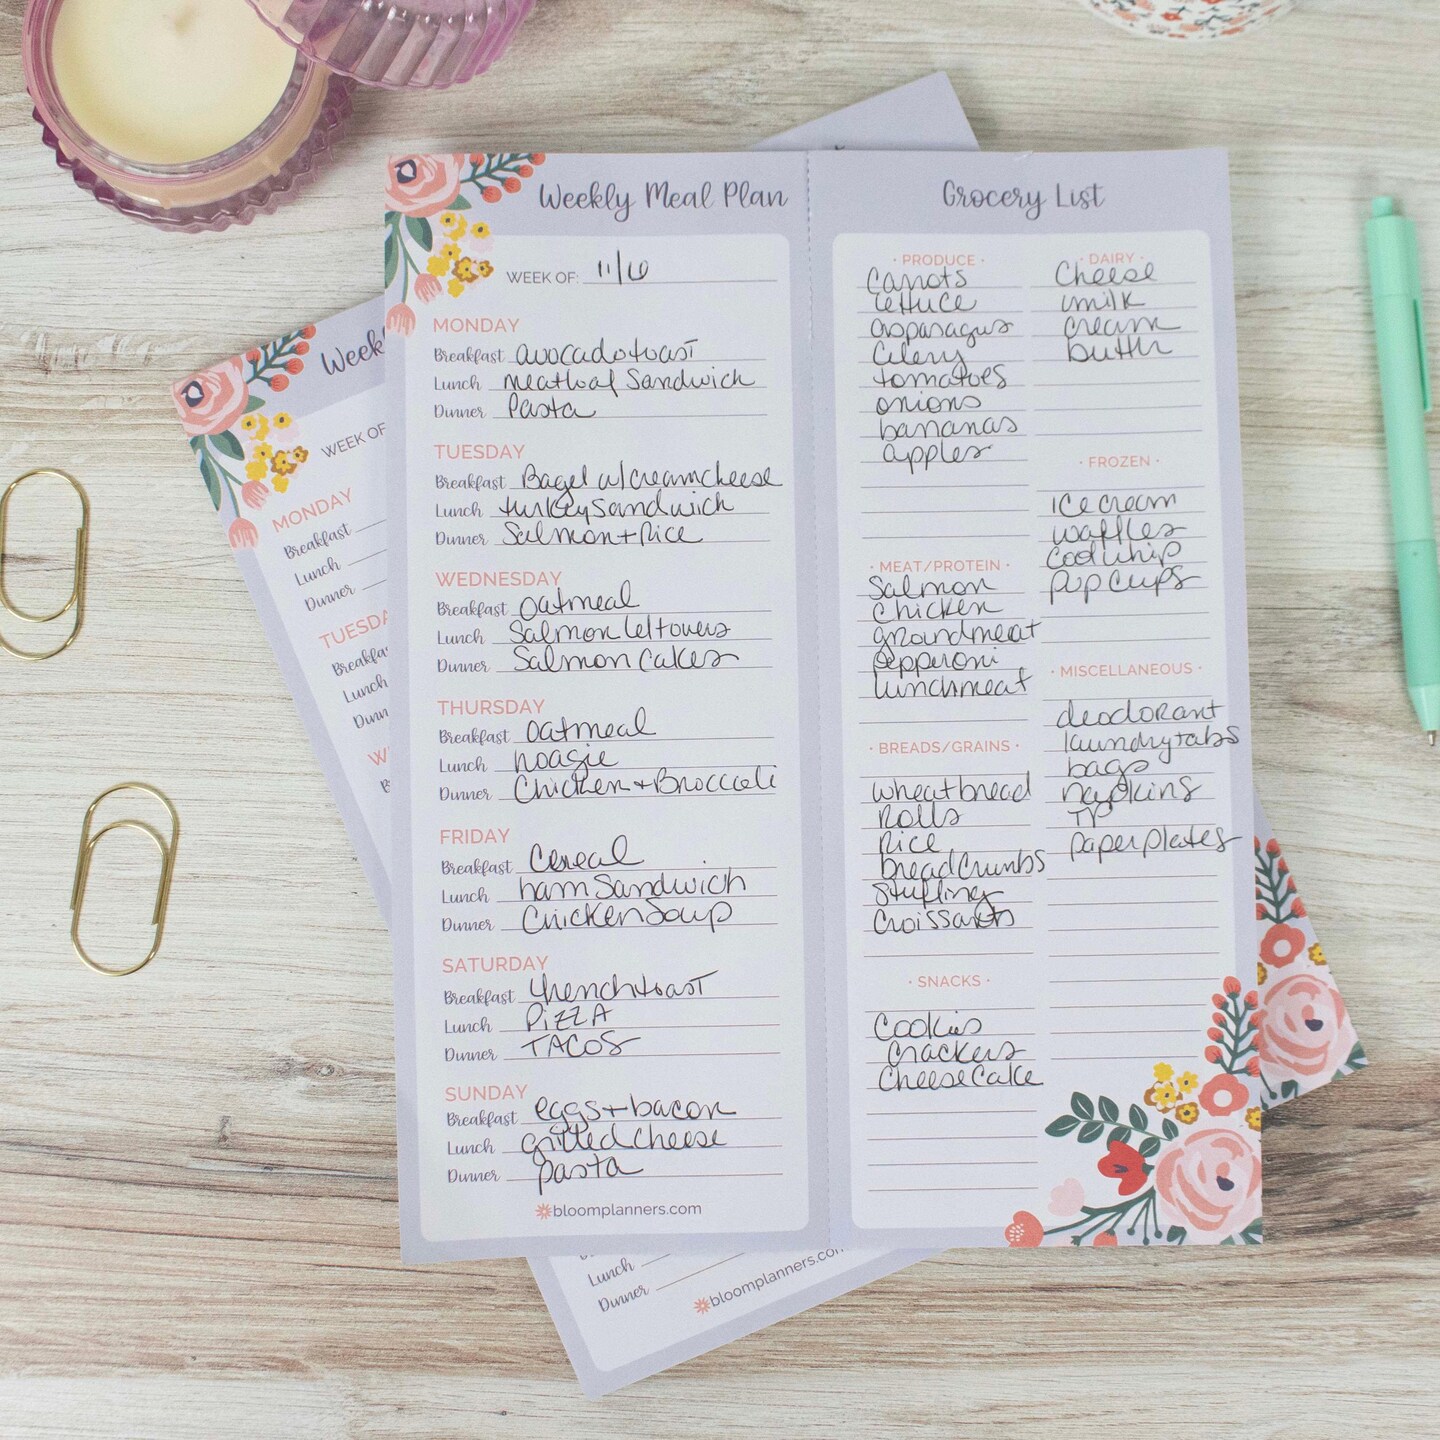 Weekly Meal Plan
WEEK OF: 11/6
MONDAY
Breakfast avocado toast
Lunch meatloaf Sandwich
Dinner Pasta
TUESDAY
Breakfast Bagel w/creamcheese
Lunch turkey Sandwich
Dinner Salmon + Rice
WEDNESDAY
Breakfast oatmeal
Lunch Salmon leftovers
Dinner Salmon Cakes
THURSDAY
Breakfast oatmeal
Lunch hoagie
Dinner Chicken + Broccoli
FRIDAY
Breakfast Cereal
Lunch ham Sandwich
Dinner Chicken Soup
SATURDAY
Breakfast french toast
Lunch PIZZA
Dinner TACOS
SUNDAY
Breakfast eggs + bacon
Lunch grilled cheese
Dinner pasta
bloomplanners.com
Grocery List
· PRODUCE ·
Carrots
lettuce
asparagus
Celery
tomatoes
onions
bananas
apples
· MEAT/PROTEIN ·
Salmon
Chicken
groundmeat
pepperoni
lunchmeat
· BREADS/GRAINS ·
wheat bread
Rolls
Rice
bread Crumbs
Stuffing
Croissants
· SNACKS ·
Cookies
Crackers
Cheese Cake
· DAIRY ·
Cheese
milk
cream
butter
· FROZEN ·
Ice cream
waffles
Cool Whip
Pup Cups
· MISCELLANEOUS ·
deodorant
laundry tabs
bags
napkins
TP
paper plates
Week
WEEK OF
MONDAY
Breakfast
Lunch
Dinner
TUESDA
Breakfa
Lunch
Dinn
W
B
Lunch
Dinner
bloomplanners.com